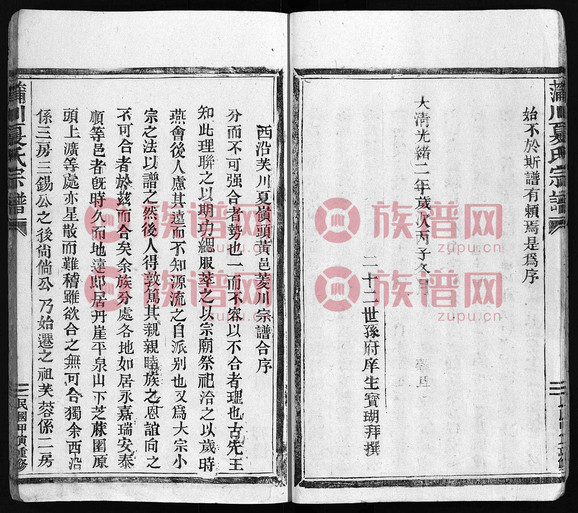 蒲川夏氏宗譜
始不於斯譜有賴焉是爲序
大清光緒二年歲次丙子冬月
二十二世孫府庠生寶瑚拜撰
西沿芙川夏嶺頭黃邑菱川宗譜合序
分而不可强合者勢也一而不容以不合者理也古先王
知此理聯之以期功緦服萃之以宗廟祭祀洽之以歲時
燕會後人慮其遠而不知源流之自派别也又爲大宗小
宗之法以譜之然後人得敦篤其親親睦族之恩誼向之
不可合者於兹而合矣余族分處各地如居永嘉瑞安泰
順等邑者旣時久而地遠卽居丹崖平泉山下芝蔴園原
頭上濱等處亦星散而難稽雖欲合之無可合獨余西沿
係三房三錫公之後尚倘公乃始遷之祖芙蓉係二房
民國甲寅重修
蒲川夏氏宗譜
族谱网
zupu.cn
族谱网
zupu.cn
族谱网
zupu.cn
族谱网
zupu.cn